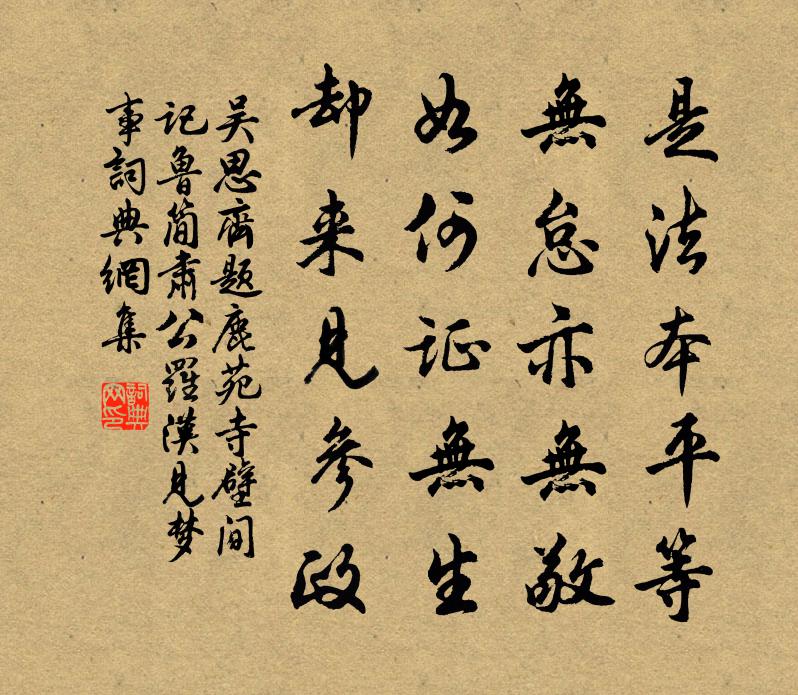 是法本平等
無怠亦無敬
如何证無生
却来見參政
吴思齊题鹿苑寺壁间
记魯簡肅公羅漢見梦
事詞典網集
詞典
网印